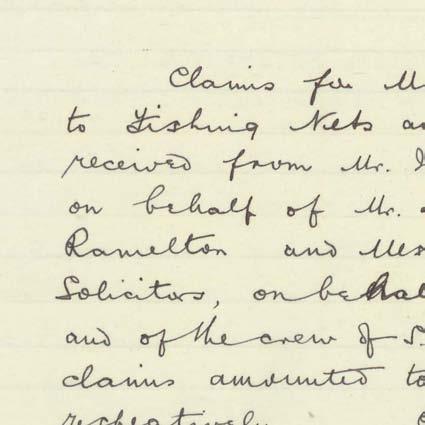 Claims for
to Fishing Nets
received from Mr.
on behalf of Mr.
Ramelton and
Solicitors, on behal
and of the crew of S.
claims amounted to
respectively